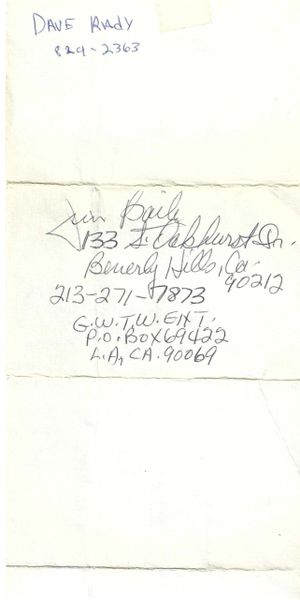 DAVE RADY
829-2363
Jim Baily
133 S. Oakhurst Dr.
Beverly Hills, Ca.
90212
213-271-7873
G.W.T.W. ENT.
P.O. BOX 69422
L.A, CA. 90069